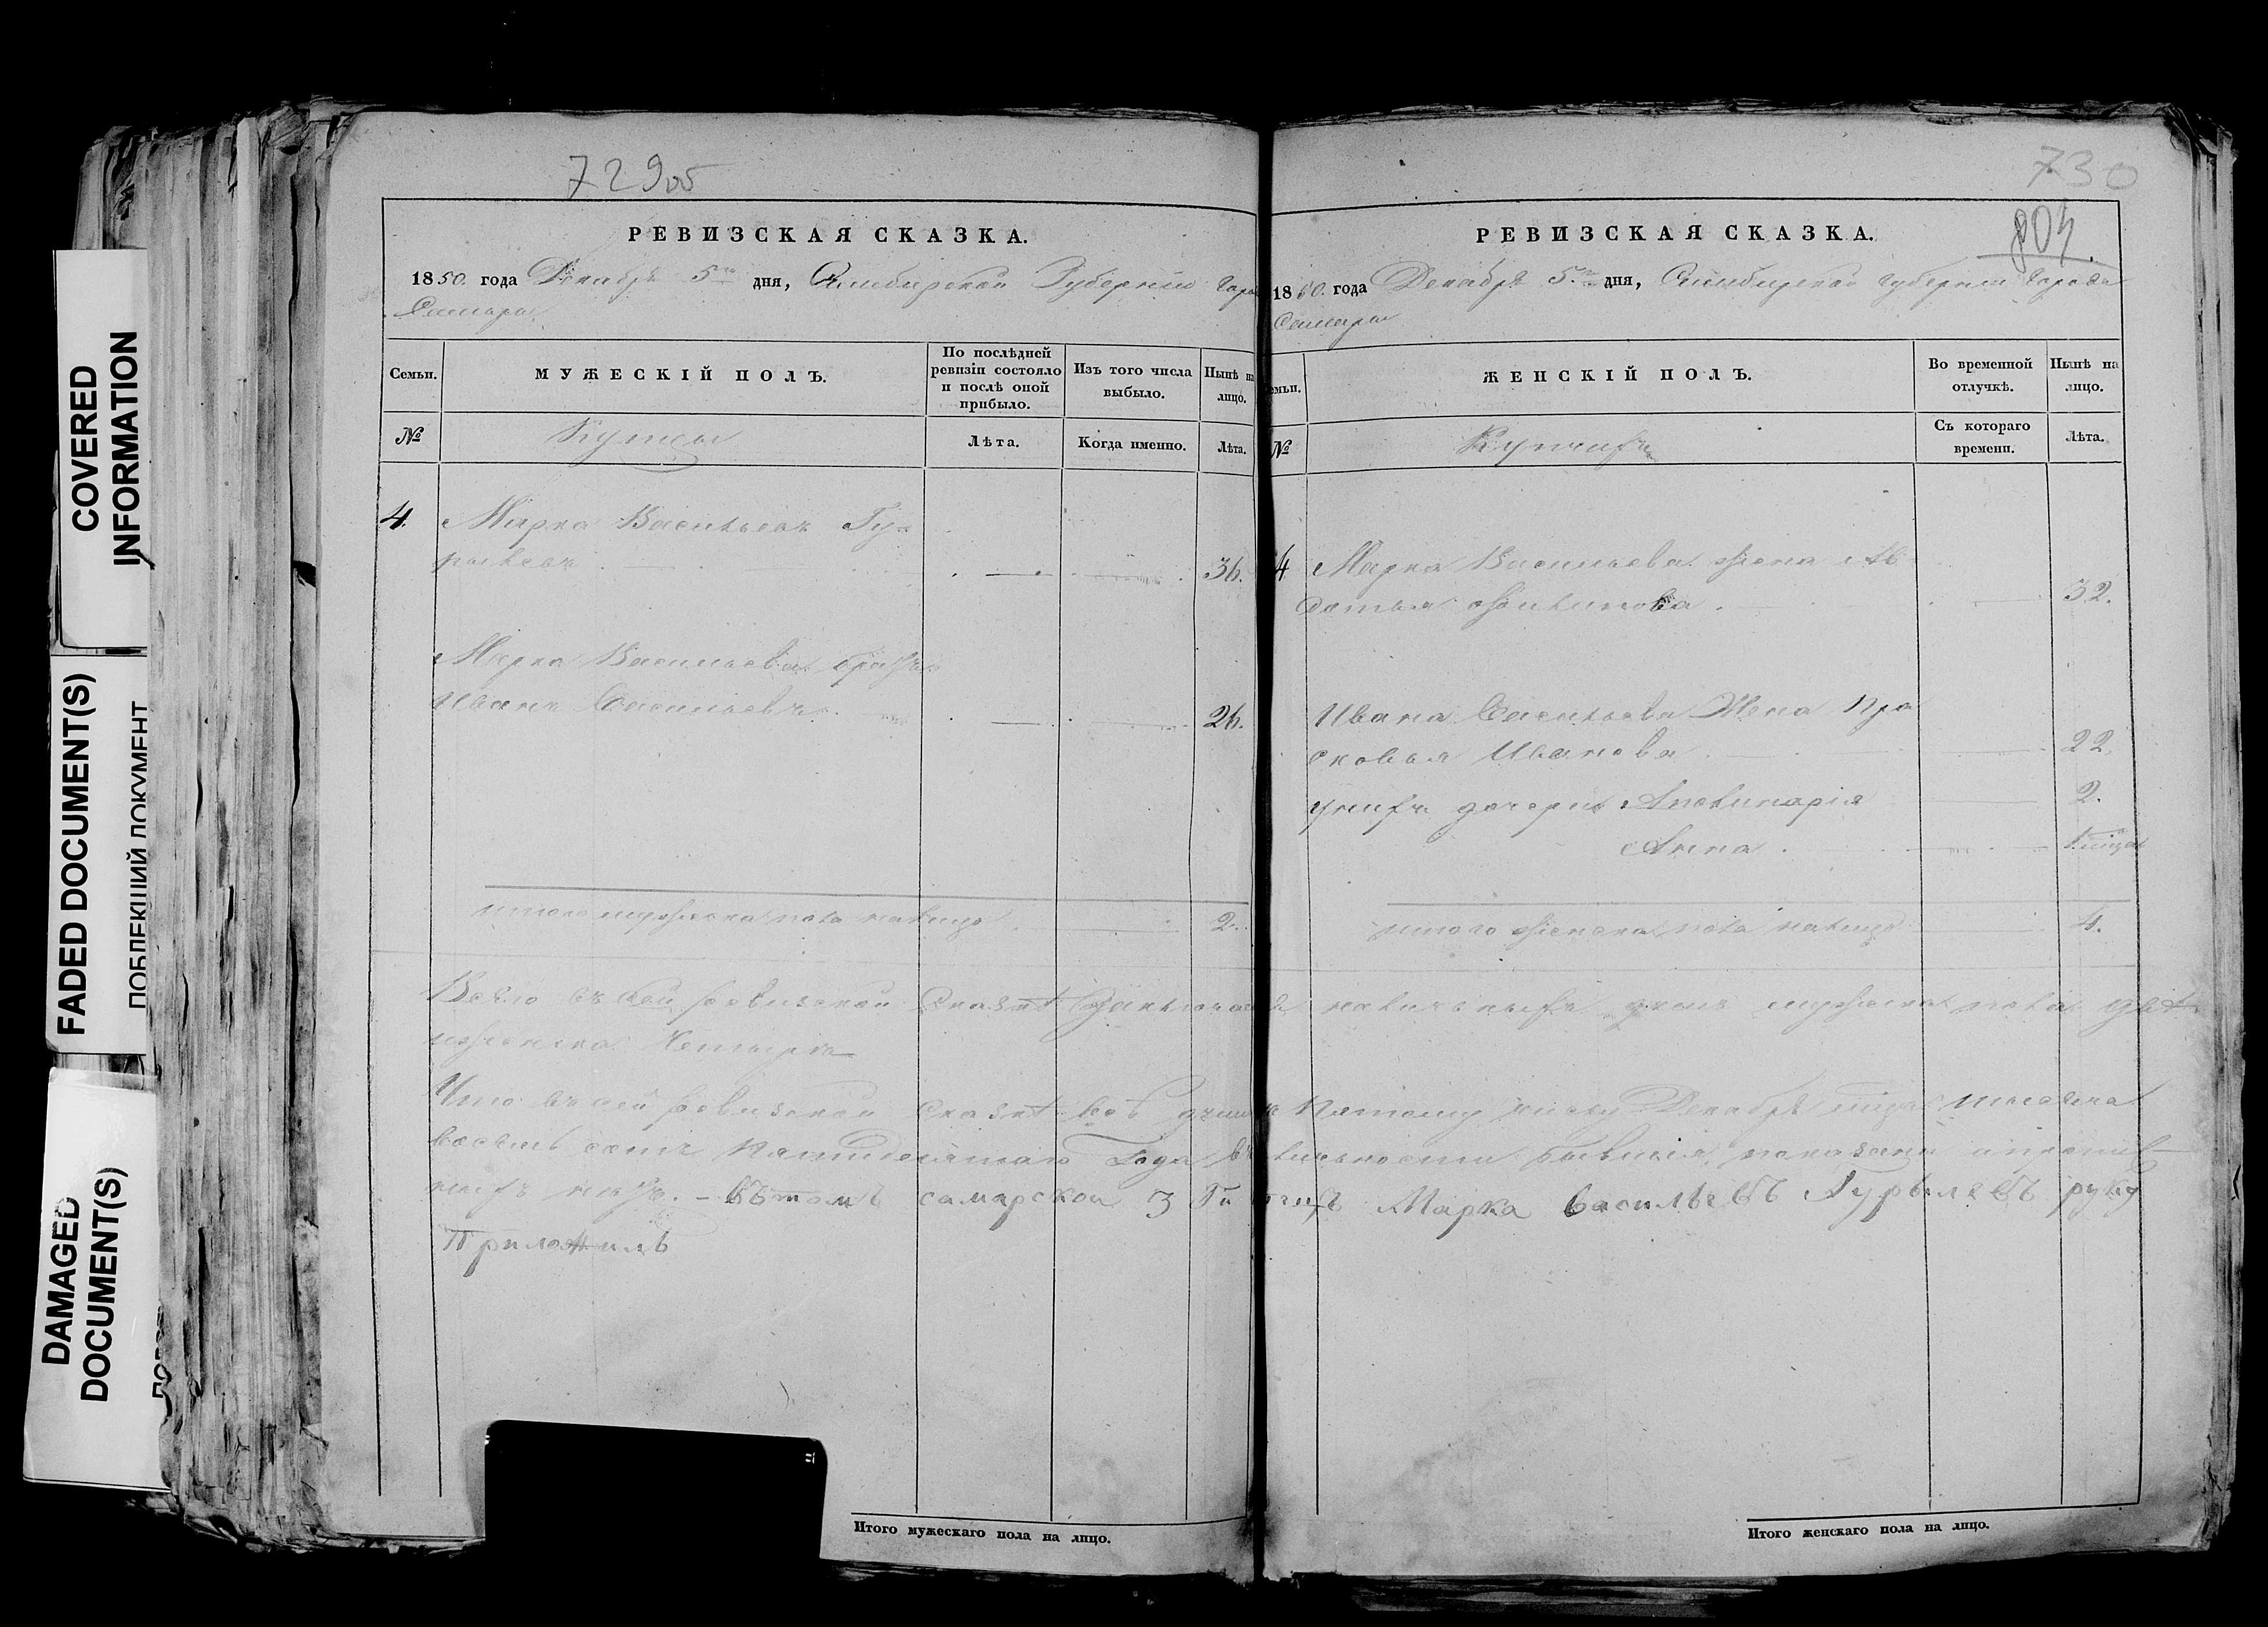 COVERED
INFORMATION
FADED DOCUMENT(S)
ПОБЛЕКШИЙ ДОКУМЕНТ
DAMAGED
DOCUMENT(S)
729об
РЕВИЗСКАЯ СКАЗКА.
1850. года Декабря 5го дня, Симбирской Губернии Горо
Самары
Семьи.
МУЖЕСКІЙ ПОЛЪ.
По послѣдней
ревизіи состояло
и послѣ оной
прибыло.
Изъ того числа
выбыло.
Нынѣ на
лицо.
№
Купцы
Лѣта.
Когда именно.
Лѣта.
4. Марка Васильевъ Гу-
рылевъ 36.
Марка Васильева братъ
Иванъ Васильевъ 26.
итого мужеска пола налицо 2.
730
804.
РЕВИЗСКАЯ СКАЗКА.
1850. года Декабря 5го дня, Симбирской губернии Города
Самары
емьи.
ЖЕНСКІЙ ПОЛЪ.
Во временной
отлучкѣ.
Нынѣ на
лицо.
№
Купчихъ
Съ котораго
времени.
Лѣта.
4 Марка Васильева жена Ав
дотья Филипова 32.
Ивана Васильева Жена Пра
сковья Иванова 22
у нихъ дочери Аполинарія 2.
Анна
итого женска пола налицо 4.
Всего въ сей ревизской Сказкѣ Заключае наличныхъ душъ мужеска пола двѣ
и женска Четыре
Что въ сей ревизской Сказкѣ всѣ души къ Пятому числу Декабря
восемь сотъ Пятидесятаго Года въ показаны
нихъ нетъ. - Въ томъ самарской 3 Марка васильевъ Гурылевъ руку
Приложилъ
Итого мужескаго пола на лицо.
Итого женскаго пола на лицо.